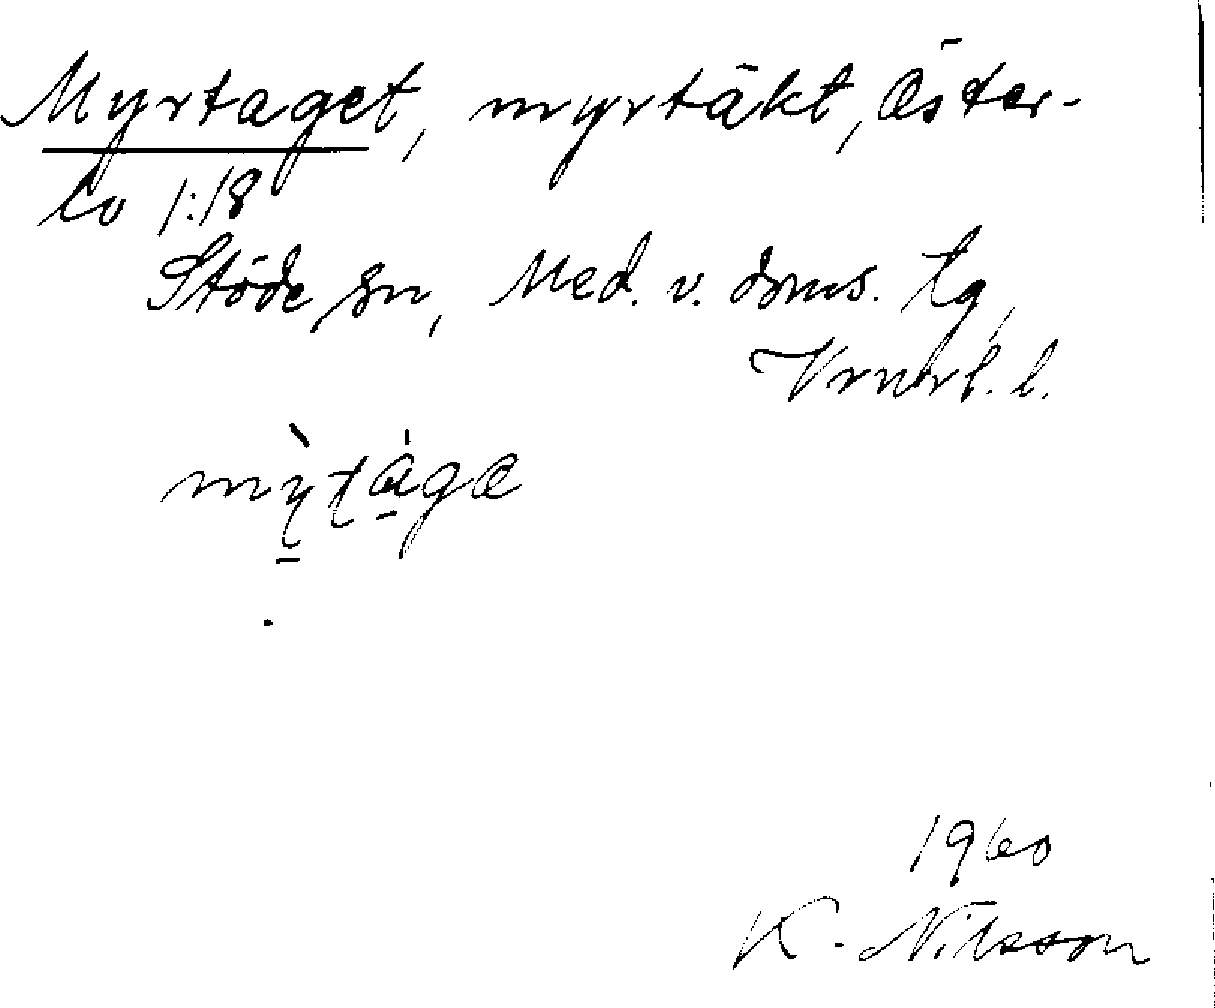 Myrtaget, myrtäkt, Öster-
lo 1:18
Stöde sn, Med. v. doms. tg,
Vrnorl. l.
mỳtágæ
1960
K. Nilsson